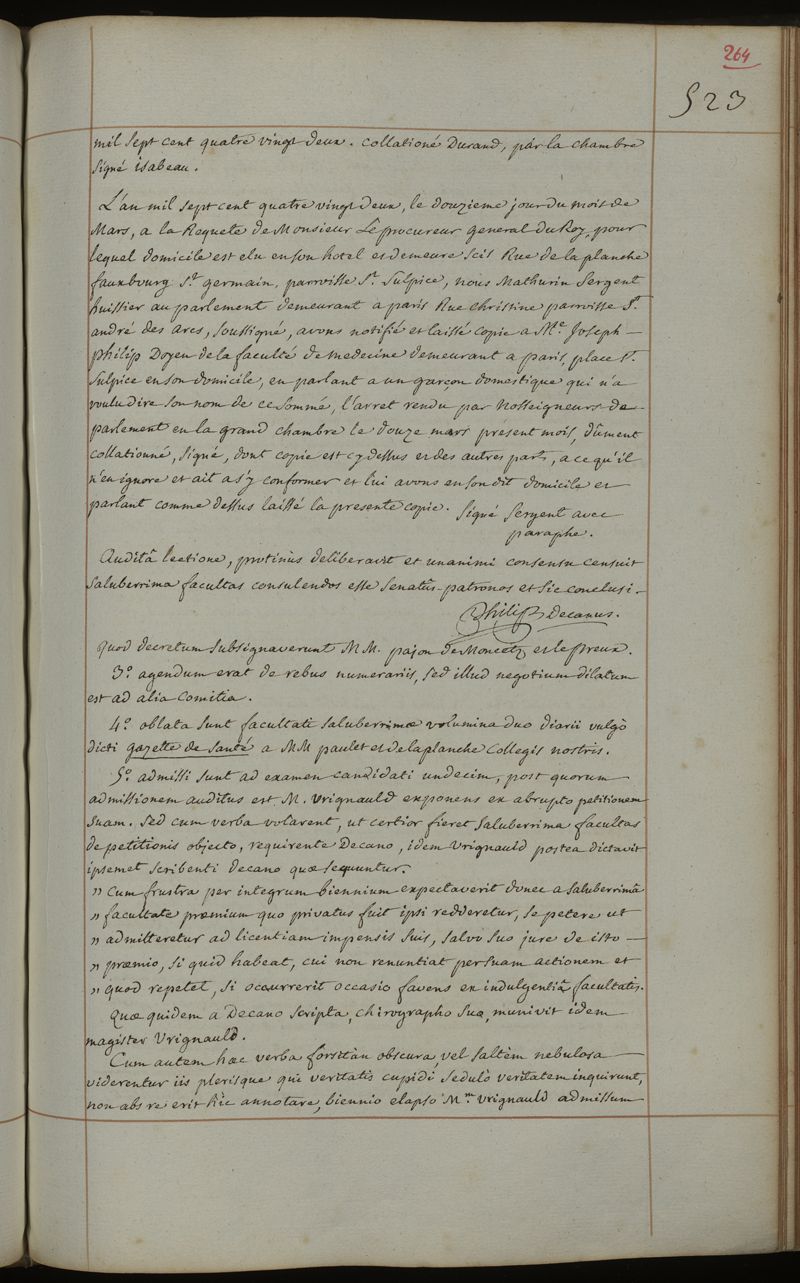 264
523
mil sept cent quatre vingt deux. Collationé Durand, par la chambre
signé isabeau.
L'an mil sept cent quatre vingt deux, le douzieme jour du mois de
Mars, a la Requete de Monsieur Le procureur general du Roy, pour
lequel domicile est elu en son hotel et demeure scis Rue de la planche
fauxbourg St. germain, parroisse St. Sulpice, nous Mathurin Sergent
huissier au parlement demeurant a paris Rue christine parroisse St.
andré des arcs, soussigné, avons notifié et laissé copie a Me. Joseph —
philip Doyen de la faculté de medecine demeurant a paris, place St.
Sulpice en son domicile, en parlant a un garçon domestique qui n'a
voulu dire son nom de ce sommé, l'arret rendu par Nosseigneurs de
parlement en la grand chambre le douze mars présent mois, dûment
collationné, signé, dont copie est cy dessus et des autres parts, a ce qu'il
n'en ignore et ait a s'y conformer et lui avons en son dit domicile et
parlant comme dessus laissé la presente copie. Signé Sergent avec
paraphe.
Auditâ lectione, protinùs deliberavit et unanimi consensu censuit
saluberrima facultas consulendos esse senatûs-patronos et sic conclusi.
Philip Decanus.
Quod decretum subsignaverunt MM. pajon de Moncets et lepreux.
3º. agendum erat de rebus numerariis, sed illud negotium dilatum
est ad alia comitia.
4º. oblata sunt facultati saluberrimæ volumina duo diarii vulgò
dicti gazette de santé a MM paulet et delaplanche collegis nostris.
5º. admissi sunt ad examen candidati undecim, post quorum
admissionem auditus est M. Vrignauld exponens ex abrupto petitionem
suam. Sed cum verba volarent, ut certior fieret saluberrima facultas
de petitionis objecto, requirente Decano, idem Vrignauld postea dictavit
ipsemet scribenti decano quæ sequuntur.
" Cum frustra per integrum biennium expectaverit donec a saluberrimâ
" facultate præmium quo privatus fuit ipsi redderetur, se petere ut
" admitteretur ad licentiam impensis suis, salvo suo jure de isto —
" præmio, si quid habeat, cui non renuntiat per suam actionem et
" quod repetet, si occurrerit occasio favens ex indulgentiâ facultatis.
Quæ quidem a Decano scripta, chirographo suo, munivit idem
magister Vrignauld.
Cum autem hæc verba forsitàn obscura, vel saltèm nebulosa —
viderentur iis plerisque qui veritatis cupidi sedulò veritatem inquirunt,
non abs re erit hìc annotare, biennio elapso Mm. Vrignauld admissum